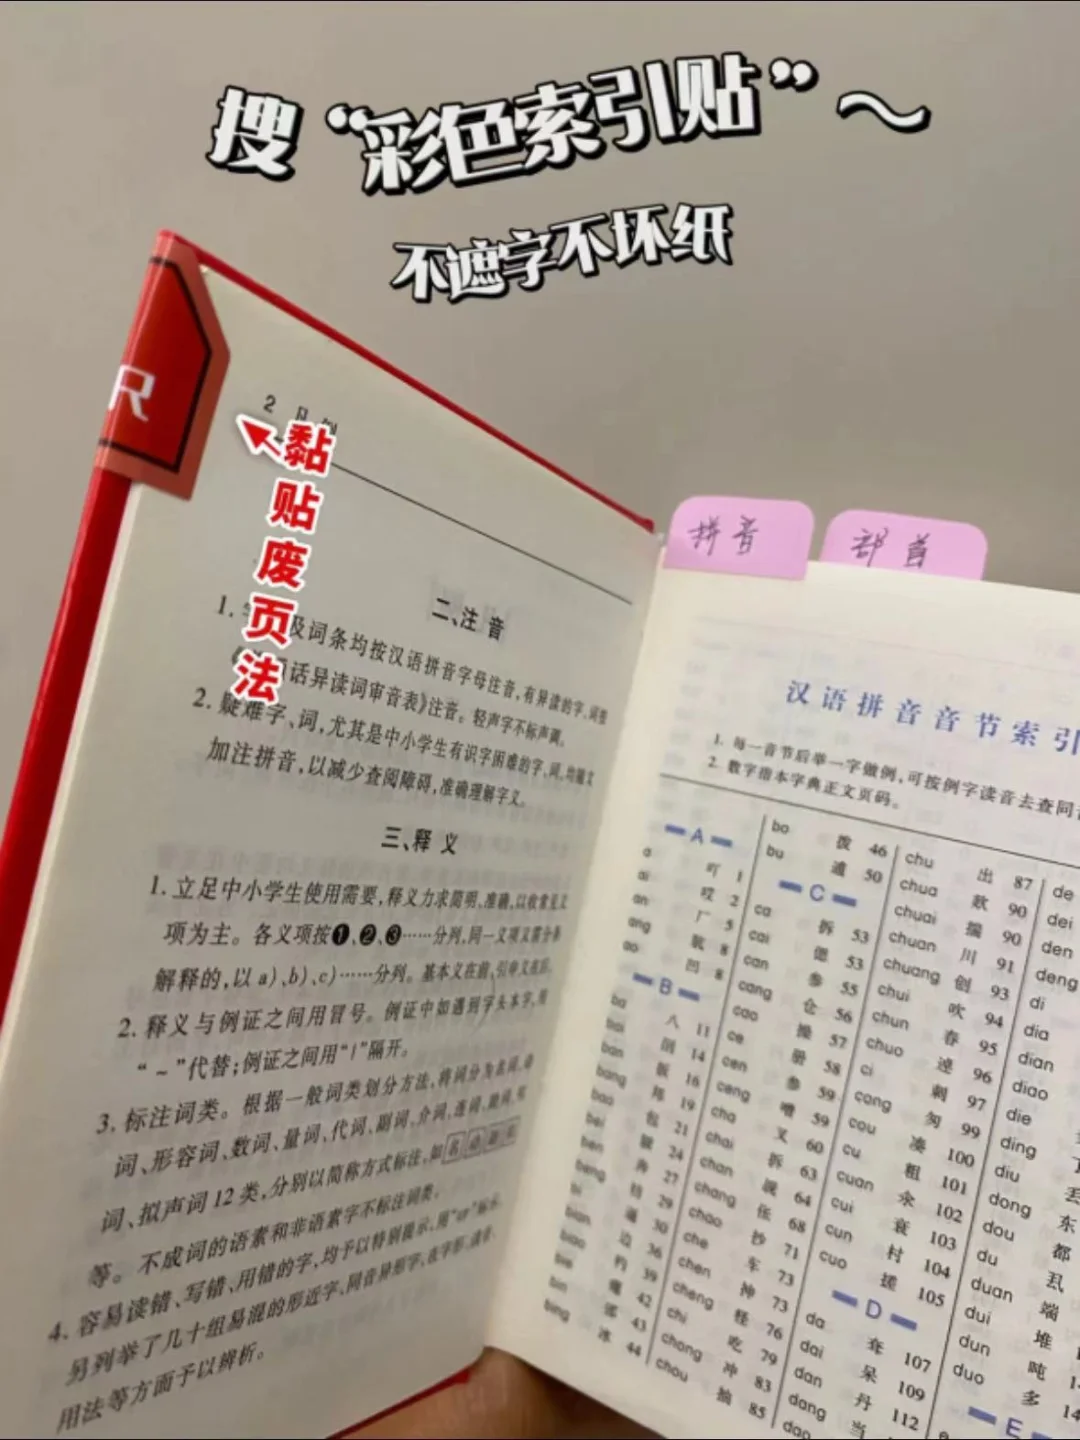 搜“彩色索引贴”～
不遮字不坏纸
R
2 凡例
黏贴废页法
二、注音
及词条均按汉语拼音字母注音，有异读的字、词
话异读词审音表》注音。轻声字不标声调。
2. 疑难字、词，尤其是中小学生有识字困难的字、词，均
加注拼音，以减少查阅障碍，准确理解字义。
三、释义
1. 立足中小学生使用需要，释义力求简明、准确，以收常见义
项为主。各义项按❶、❷、❸……分列，同一义项又需分
解释的，以 a）、b）、c）……分列。基本义在前，引申义在后。
2. 释义与例证之间用冒号。例证中如遇到字头本字，用
“～”代替；例证之间用“|”隔开。
3. 标注词类。根据一般词类划分方法，将词分为名词、动
词、形容词、数词、量词、代词、副词、介词、连词、助词、叹
词、拟声词12类，分别以简称方式标注，如名动
等。不成词的语素和非语素字不标注词类。
4. 容易读错、写错、用错的字，均予以特别提示，用“”标示。
另列举了几十组易混的形近字、同音异形字，在字形、读音、
用法等方面予以辨析。
拼音
部首
汉语拼音音节索引
1. 每一音节后举一字做例，可按例字读音去查同
2. 数字指本字典正文页码。
A
a 吖 1
ai 哎 2
an 厂 5
ang 肮 8
ao 凹 8
B
ba 八 11
bai 14
ban 扳 16
bang 邦 19
bao 包 21
bei 24
ben 奔 27
beng 29
bi 逼 30
bian 边 36
biao 39
bie 42
bin 43
bing 冰 44
bo 拨 46
bu 逋 50
C
ca 拆 53
cai 偲 53
can 参 55
cang 仓 56
cao 操 57
ce 册 58
cen 参 59
ceng 噌 59
cha 叉 60
chai 拆 63
chan 觇 64
chang 伥 68
chao 抄 71
che 车 73
chen 抻 73
cheng 柽 76
chi 吃 79
chong 冲 83
chou 抽 85
chu 出 87
chua 欻 90
chuai 揣 90
chuan 川 91
chuang 创 93
chui 吹 94
chun 春 95
chuo 逴 96
ci 刺 97
cong 匆 99
cou 凑 100
cu 粗 101
cuan 汆 102
cui 衰 103
cun 村 104
cuo 搓 105
D
da 耷 107
dai 呆 109
dan 丹 112
dang 当
dao
de
dei
den
deng
di
dia
dian
diao
die
ding
diu 丢
dong 东
dou 都
du
duan 端
dui 堆
dun 吨
duo 多
E